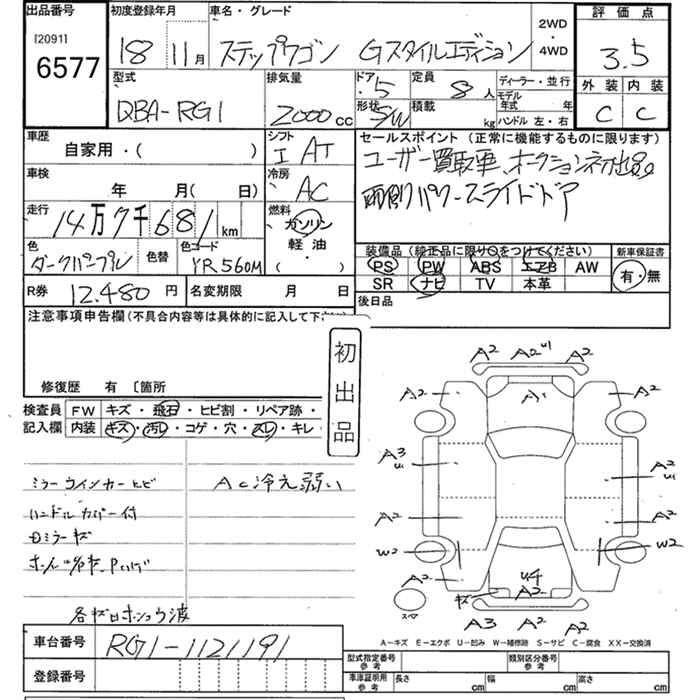 出品番号 初度登録年月 車名・グレード 2WD・4WD 評価点
[2091]
6577 18 11月 ステップワゴン Gスタイルエディション 3.5
型式 排気量 ドア 5 定員 8人 ディーラー・並行 外装 内装
DBA-RG1 2000cc 形状 S/W 積載 kg モデル年式 年 C C
ハンドル 左・右
車歴 シフト セールスポイント (正常に機能するものに限ります)
自家用・( ) I AT ユーザー買取車、オークション初出品。
車検 冷房 両側パワースライドドア
年 月(日) AC
走行 燃料
14万7千681km ガソリン
色 色替 色コード 軽油 装備品 (純正品に限り○をつけてください) 新車保証書
ダークパープル YR560M ( ) PS PW ABS エアB AW 有・無
R券 12.480円 名変期限 月 日 SR ナビ TV 本革
注意事項申告欄 後日品
修復歴 有 〔箇所
初出品
検査員 FW キズ・飛石・ヒビ割・リペア跡・
記入欄 内装 キズ・汚レ・コゲ・穴・スレ・キレ
ミラーウインカーヒビ AC冷え弱い
ハンドルカバー付
Dミラーキズ
A2 A2 U1 A2
A2 A1 A2
A3 U1 A2 U1
A2 A2
W2 W2
A2 U4 A2
キズ A2
スペア A3 A2 A2
A-キズ E-エクボ U-凹み W-補修跡 S-サビ C-腐食 XX-交換済
車台番号 RG1-1121191
登録番号
型式指定番号 参考 類別区分番号 参考
車庫証明用 参考 長さ cm 幅 cm 高さ cm